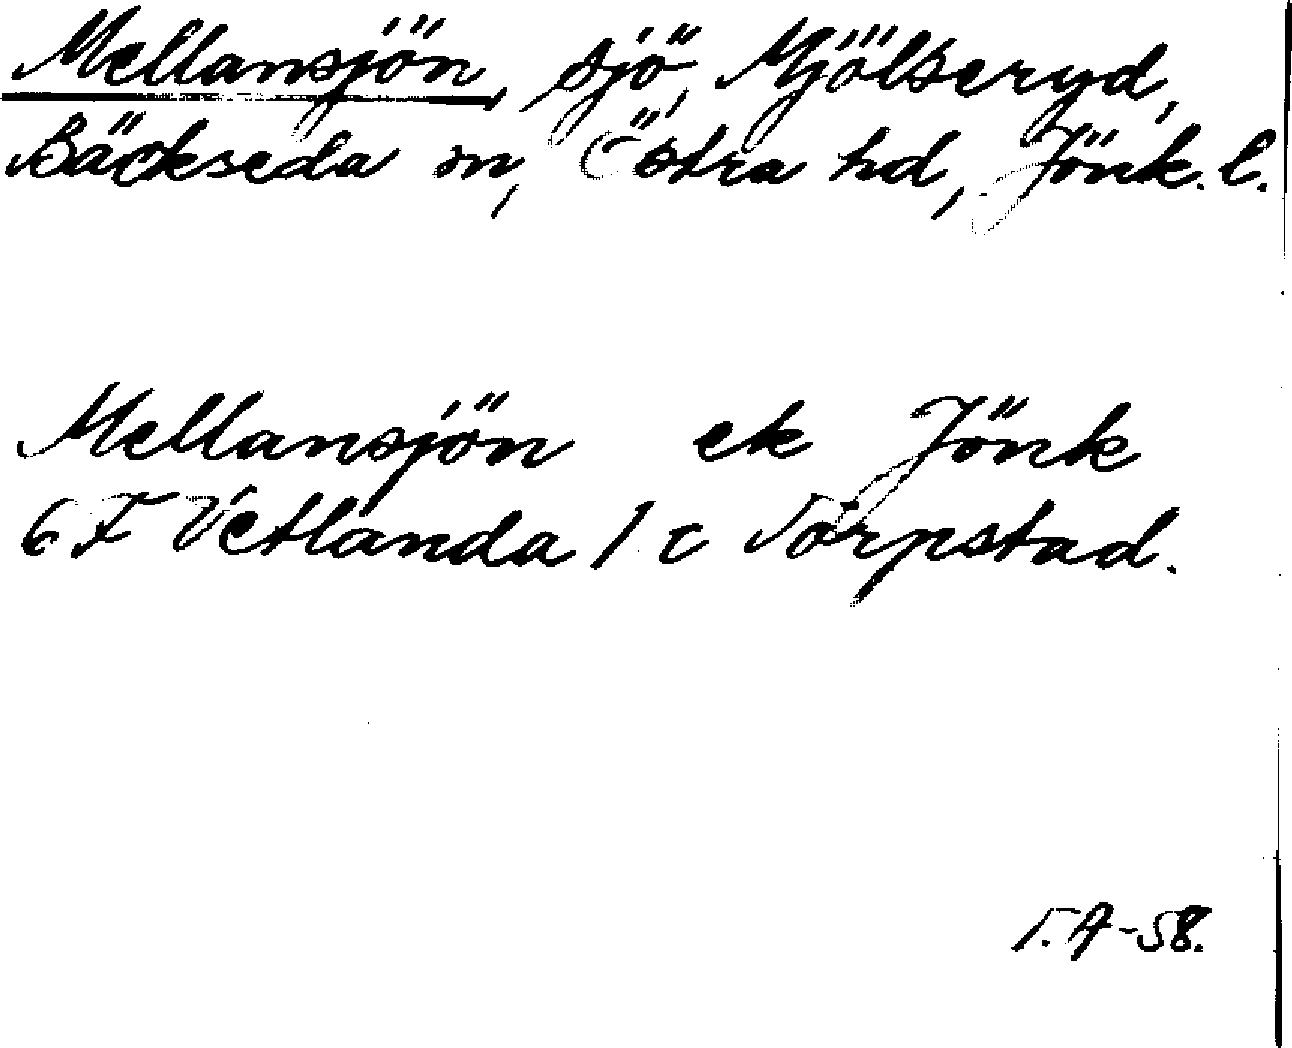 Mellansjön, sjö, Mjölseryd,
Bäckseda sn, Östra hd, Jönk. l.
Mellansjön ek Jönk
6 F Vetlanda 1 c Torpstad.
T. A-58.